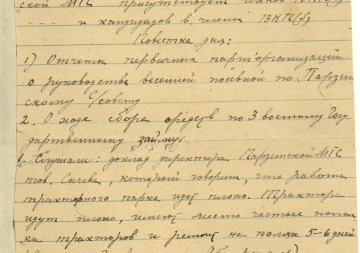 ской МТС присутствует
и кандидатов в члены ВКП(б)
Повестка дня:
1) Отчеты первичных парт'организаций
о руководстве весенней посевной по Парзин-
скому с/совету
2. О ходе сбора средств по 3 военному Госу
дарственному займу.
1. Слушали: доклад директора Парзинской МТС
тов. Сычева, который говорит, что работа
тракторного парка идет плохо. Трактора
идут плохо, имеют место частые полом
ки тракторов и ремонт на полях 5-6 дней